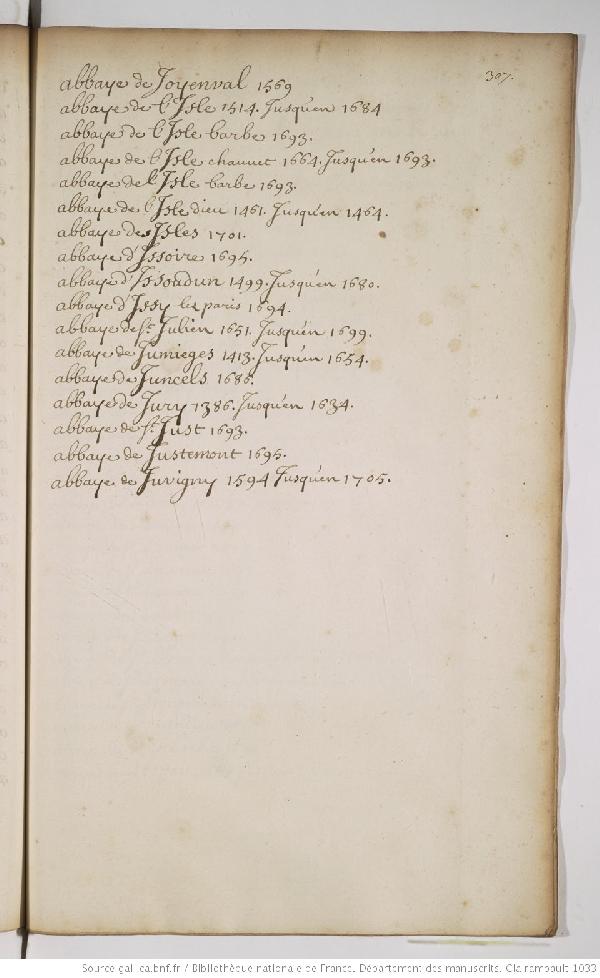 307.
abbaye de Joyenval 1569
abbaye de l'Isle 1514. Jusqu'en 1684
abbaye de l'Isle barbe 1693.
abbaye de l'Isle chauvet 1664. Jusqu'en 1693.
abbaye de l'Isle barbe 1693.
abbaye de l'Isle dieu 1461. Jusqu'en 1464.
abbaye des Isles 1701.
abbaye d'Issoire 1695.
abbaye d'Issoudun 1499. Jusqu'en 1680.
abbaye d'Issy les paris 1694.
abbaye de St. Julien 1651. Jusqu'en 1699.
abbaye de Jumieges 1413. Jusqu'en 1654.
abbaye de Juncels 1686.
abbaye de Jury 1386. Jusqu'en 1634.
abbaye de St. Just 1693.
abbaye de Justemont 1695.
abbaye de Juvigny 1594 Jusqu'en 1705.
Source gallica.bnf.fr / Bibliothèque nationale de France. Département des manuscrits. Clairambault 1032